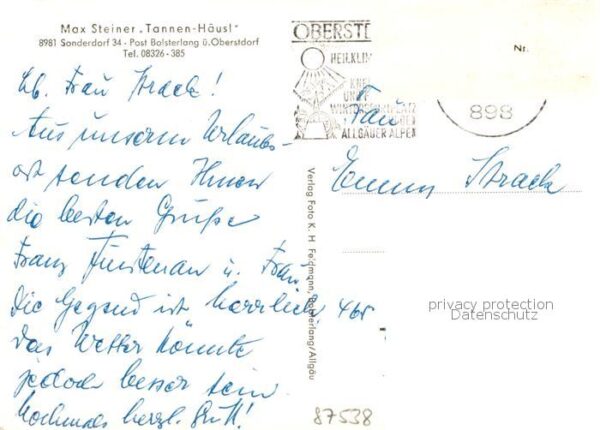 Max Steiner „Tannen-Häusl"
8981 Sonderdorf 34 - Post Bolsterlang ü. Oberstdorf
Tel. 08326-385
Lb. Frau Strack!
Aus unserm Urlaubs-
ort senden Ihnen
die besten Grüße
Franz Fürstenau u. Frau.
Die Gegend ist herrlich
das Wetter könnte
jedoch besser sein
Nochmals herzl. Gruß!
OBERST
HEILKLIM
WINTERSPORTPLATZ
ALLGÄUER ALPEN
898
Nr.
Frau
Emmy Strack
Verlag Foto K. H. Feldmann, Bolsterlang/Allgäu
privacy protection
Datenschutz
87538